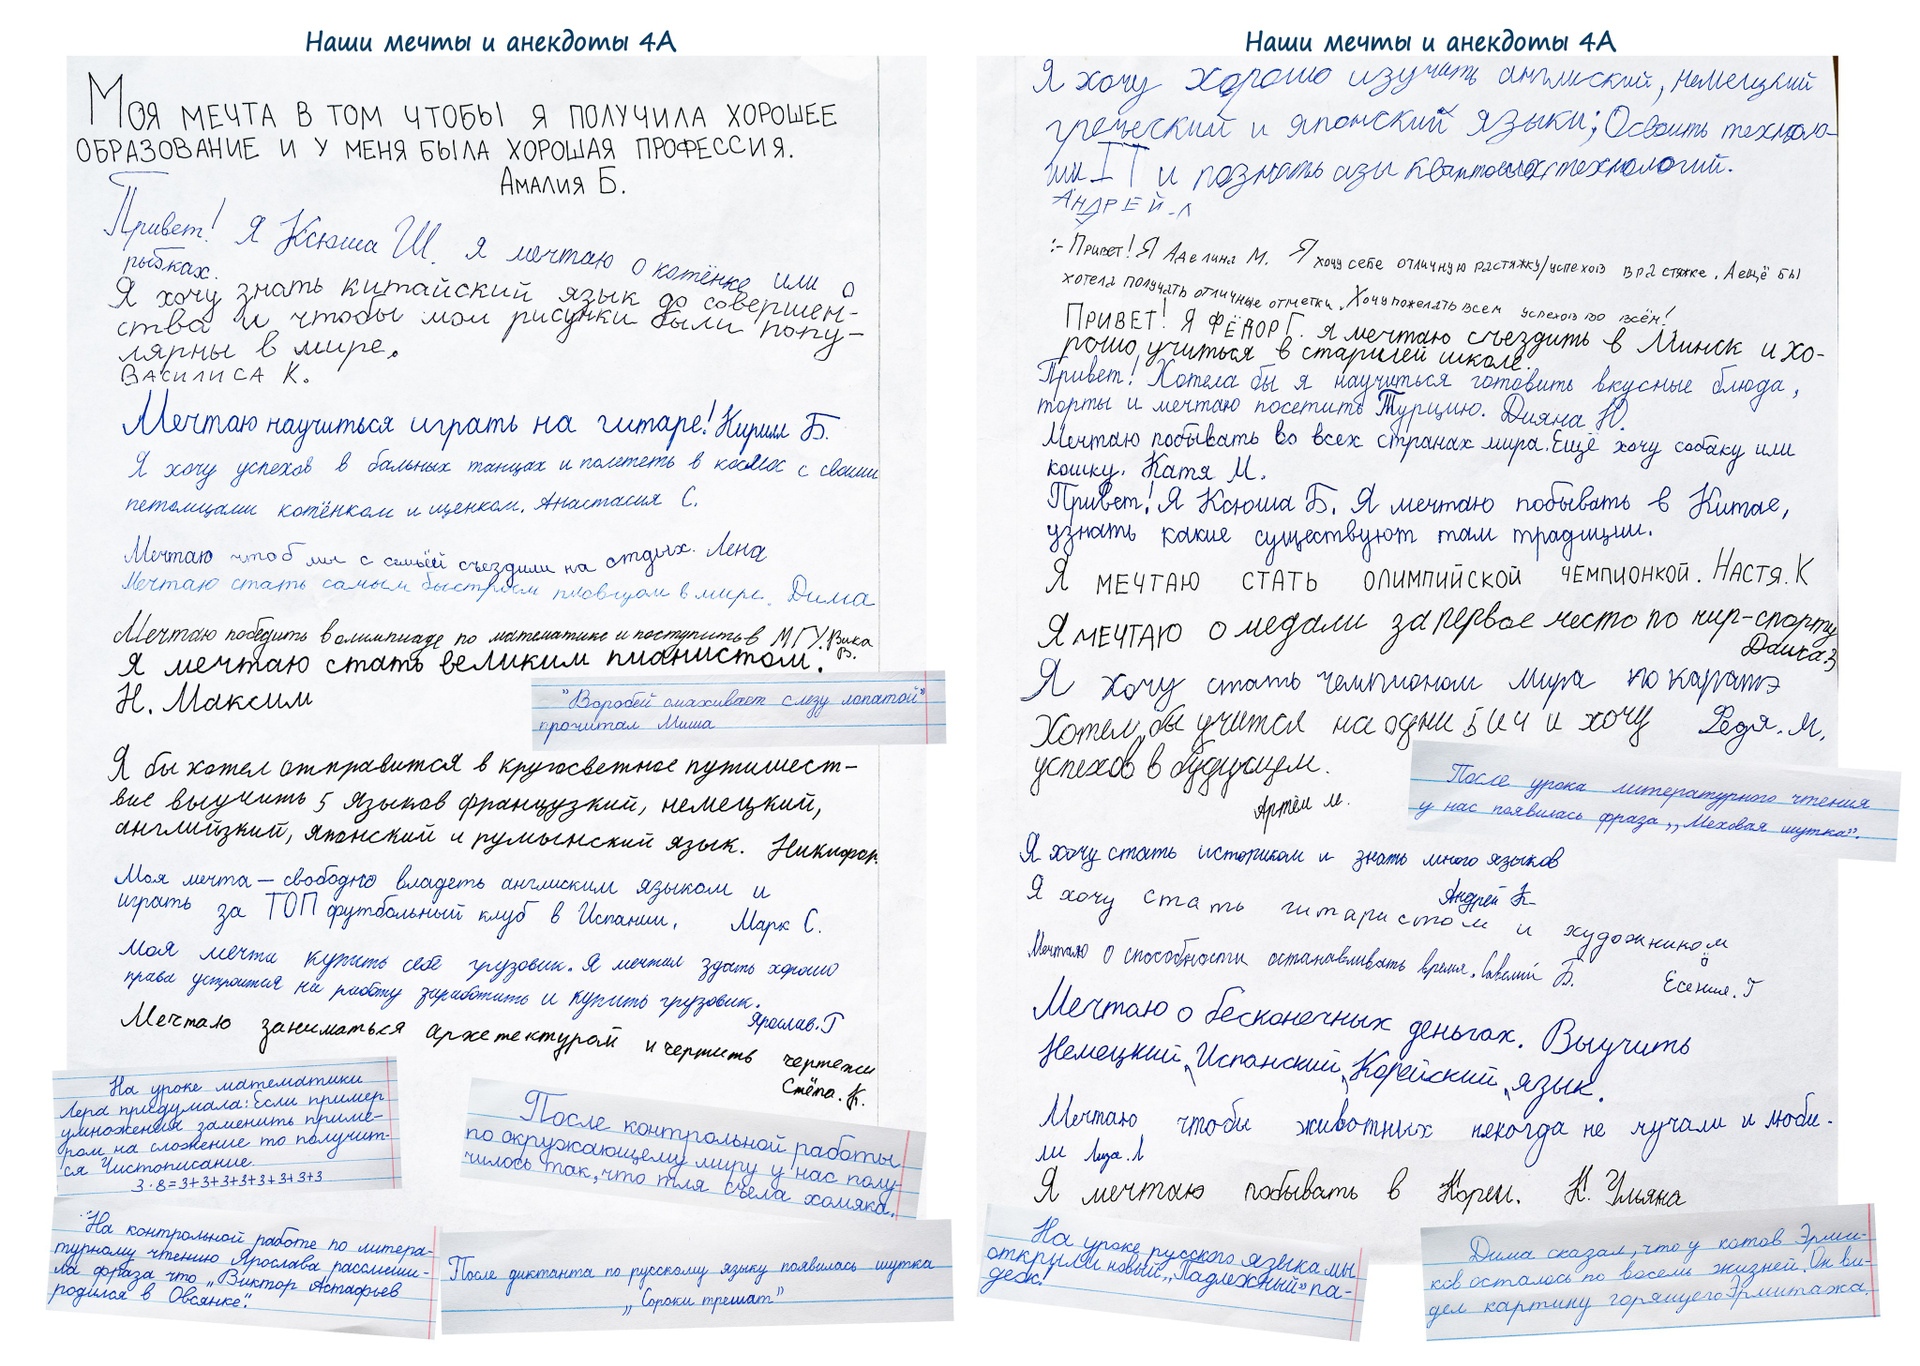 Наши мечты и анекдоты 4А
Моя мечта в том чтобы я получила хорошее
образование и у меня была хорошая профессия.
Амалия Б.
Привет! Я Ксюша Ш. я мечтаю о котёнке или о
рыбках.
Я хочу знать китайский язык до совершен-
ства и чтобы мои рисунки были попу-
лярны в мире.
Василиса К.
Мечтаю научиться играть на гитаре! Кирилл Б.
Я хочу успехов в бальных танцах и полететь в космос с своими
петомцами котёнком и щенком. Анастасия С.
Мечтаю чтоб мы с семьёй съездили на отдых. Лена
Мечтаю стать самым быстрым пловцом в мире. Дима
Мечтаю победить в олимпиаде по математике и поступить в МГУ. Вика
В.
Я мечтаю стать великим пианистом.
Н. Максим
"Воробей смахивает слезу лопатой"
прочитал Миша
Я бы хотел отправится в кругосветное путишест-
вие выучить 5 языков французкий, немецкий,
английзкий, японский и румынский язык. Никифор
Моя мечта — свободно владеть англиским языком и
играть за ТОП футбольный клуб в Испании. Марк С.
Моя мечта купить себе грузовик. Я мечтал здать хорошо
права устроится на работу заработить и купить грузовик.
Ярослав.Г
Мечтаю заниматься архетектурой и чертить чертежи
Стёпа.К.
На уроке математики
Лера придумала: Если пример
умножения заменить приме-
ром на сложение то получит-
ся Чистописание.
3·8=3+3+3+3+3+3+3+3
После контрольной работы
по окружающему миру у нас полу-
чилось так, что тля съела хомяка.
"На контрольной работе по литера-
турному чтению Ярослава рассмеши-
ла фраза что „Виктор Астафьев
родился в Овсянке".
После диктанта по русскому языку появилась шутка
„Сороки трешат"
Наши мечты и анекдоты 4А
Я хочу хорошо изучить англиский, немецкий
греческий и японский языки; Освоить техноло-
гии IT и познать азы квантовых технологий.
Андрей.Л
:- Привет! Я Аделина М. Я хочу себе отличную растяжку/успехов в растяжке. А ещё бы
хотела получать отличные отметки. Хочу пожелать всем успехов во всём!
Привет! Я Фёдор Г. я мечтаю съездить в Минск и хо-
рошо учиться в старшей школе.
Привет! Хотела бы я научиться готовить вкусные блюда,
торты и мечтаю посетить Турцию. Дияна Ю.
Мечтаю побывать во всех странах мира. Ещё хочу собаку или
кошку. Катя М.
Привет! Я Ксюша Б. Я мечтаю побывать в Китае,
узнать какие существуют там традиции.
Я мечтаю стать олимпийской чемпионкой. Настя.К
Я мечтаю о медали за первое место по чир-спорту
Я хочу стать чемпионом мира по каратэ
Федя.М.
Хотел бы учится на одни 5 и 4 и хочу
успехов в будущем.
Артём М.
После урока литературного чтения
у нас появилась фраза „Меховая шутка".
Я хочу стать историком и знать много языков
Андрей К.
Я хочу стать гитаристом и художником
Есения.Г
Мечтаю о способности останавливать время. Савелий Б.
Мечтаю о бесконечных деньгах. Выучить
Немецкий, Испанский, Корейский, язык.
Мечтаю чтобы животных некогда не мучали и люби-
ли Лиза.Л
Я мечтаю побывать в Кореи. К. Ульяна
На уроке русского языка мы
открыли новый „Падлежный" па-
деж!
Дима сказал, что у котов Эрми-
ков осталось по восемь жизней. Он ви-
дел картину горящего Эрмитажа.